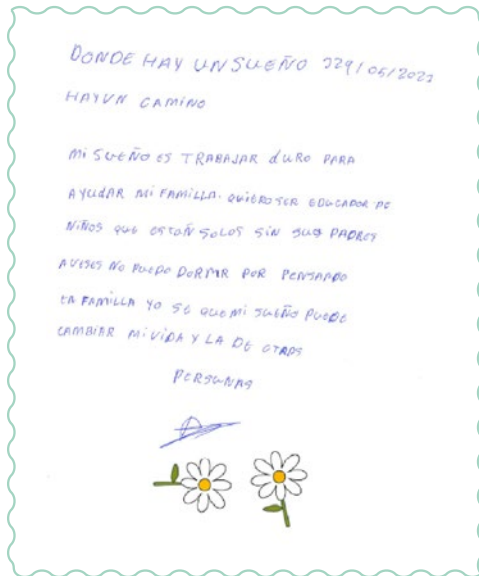 DONDE HAY UN SUEÑO 229/05/2023
HAY UN CAMINO
MI SUEÑO ES TRABAJAR dURO PARA
AYUDAR MI FAMILLA. QUIERO SER EDUCADOR DE
NIÑOS QUE ESTAÑ SOLOS SIN SUS PADRES
AVESES NO PUEDO DORMIR POR PENSANDO
EN FAMILLA YO SE QUE MI SUEÑO PUEDE
CAMBIAR MI VIDA Y LA DE OTRAS
PERSONAS